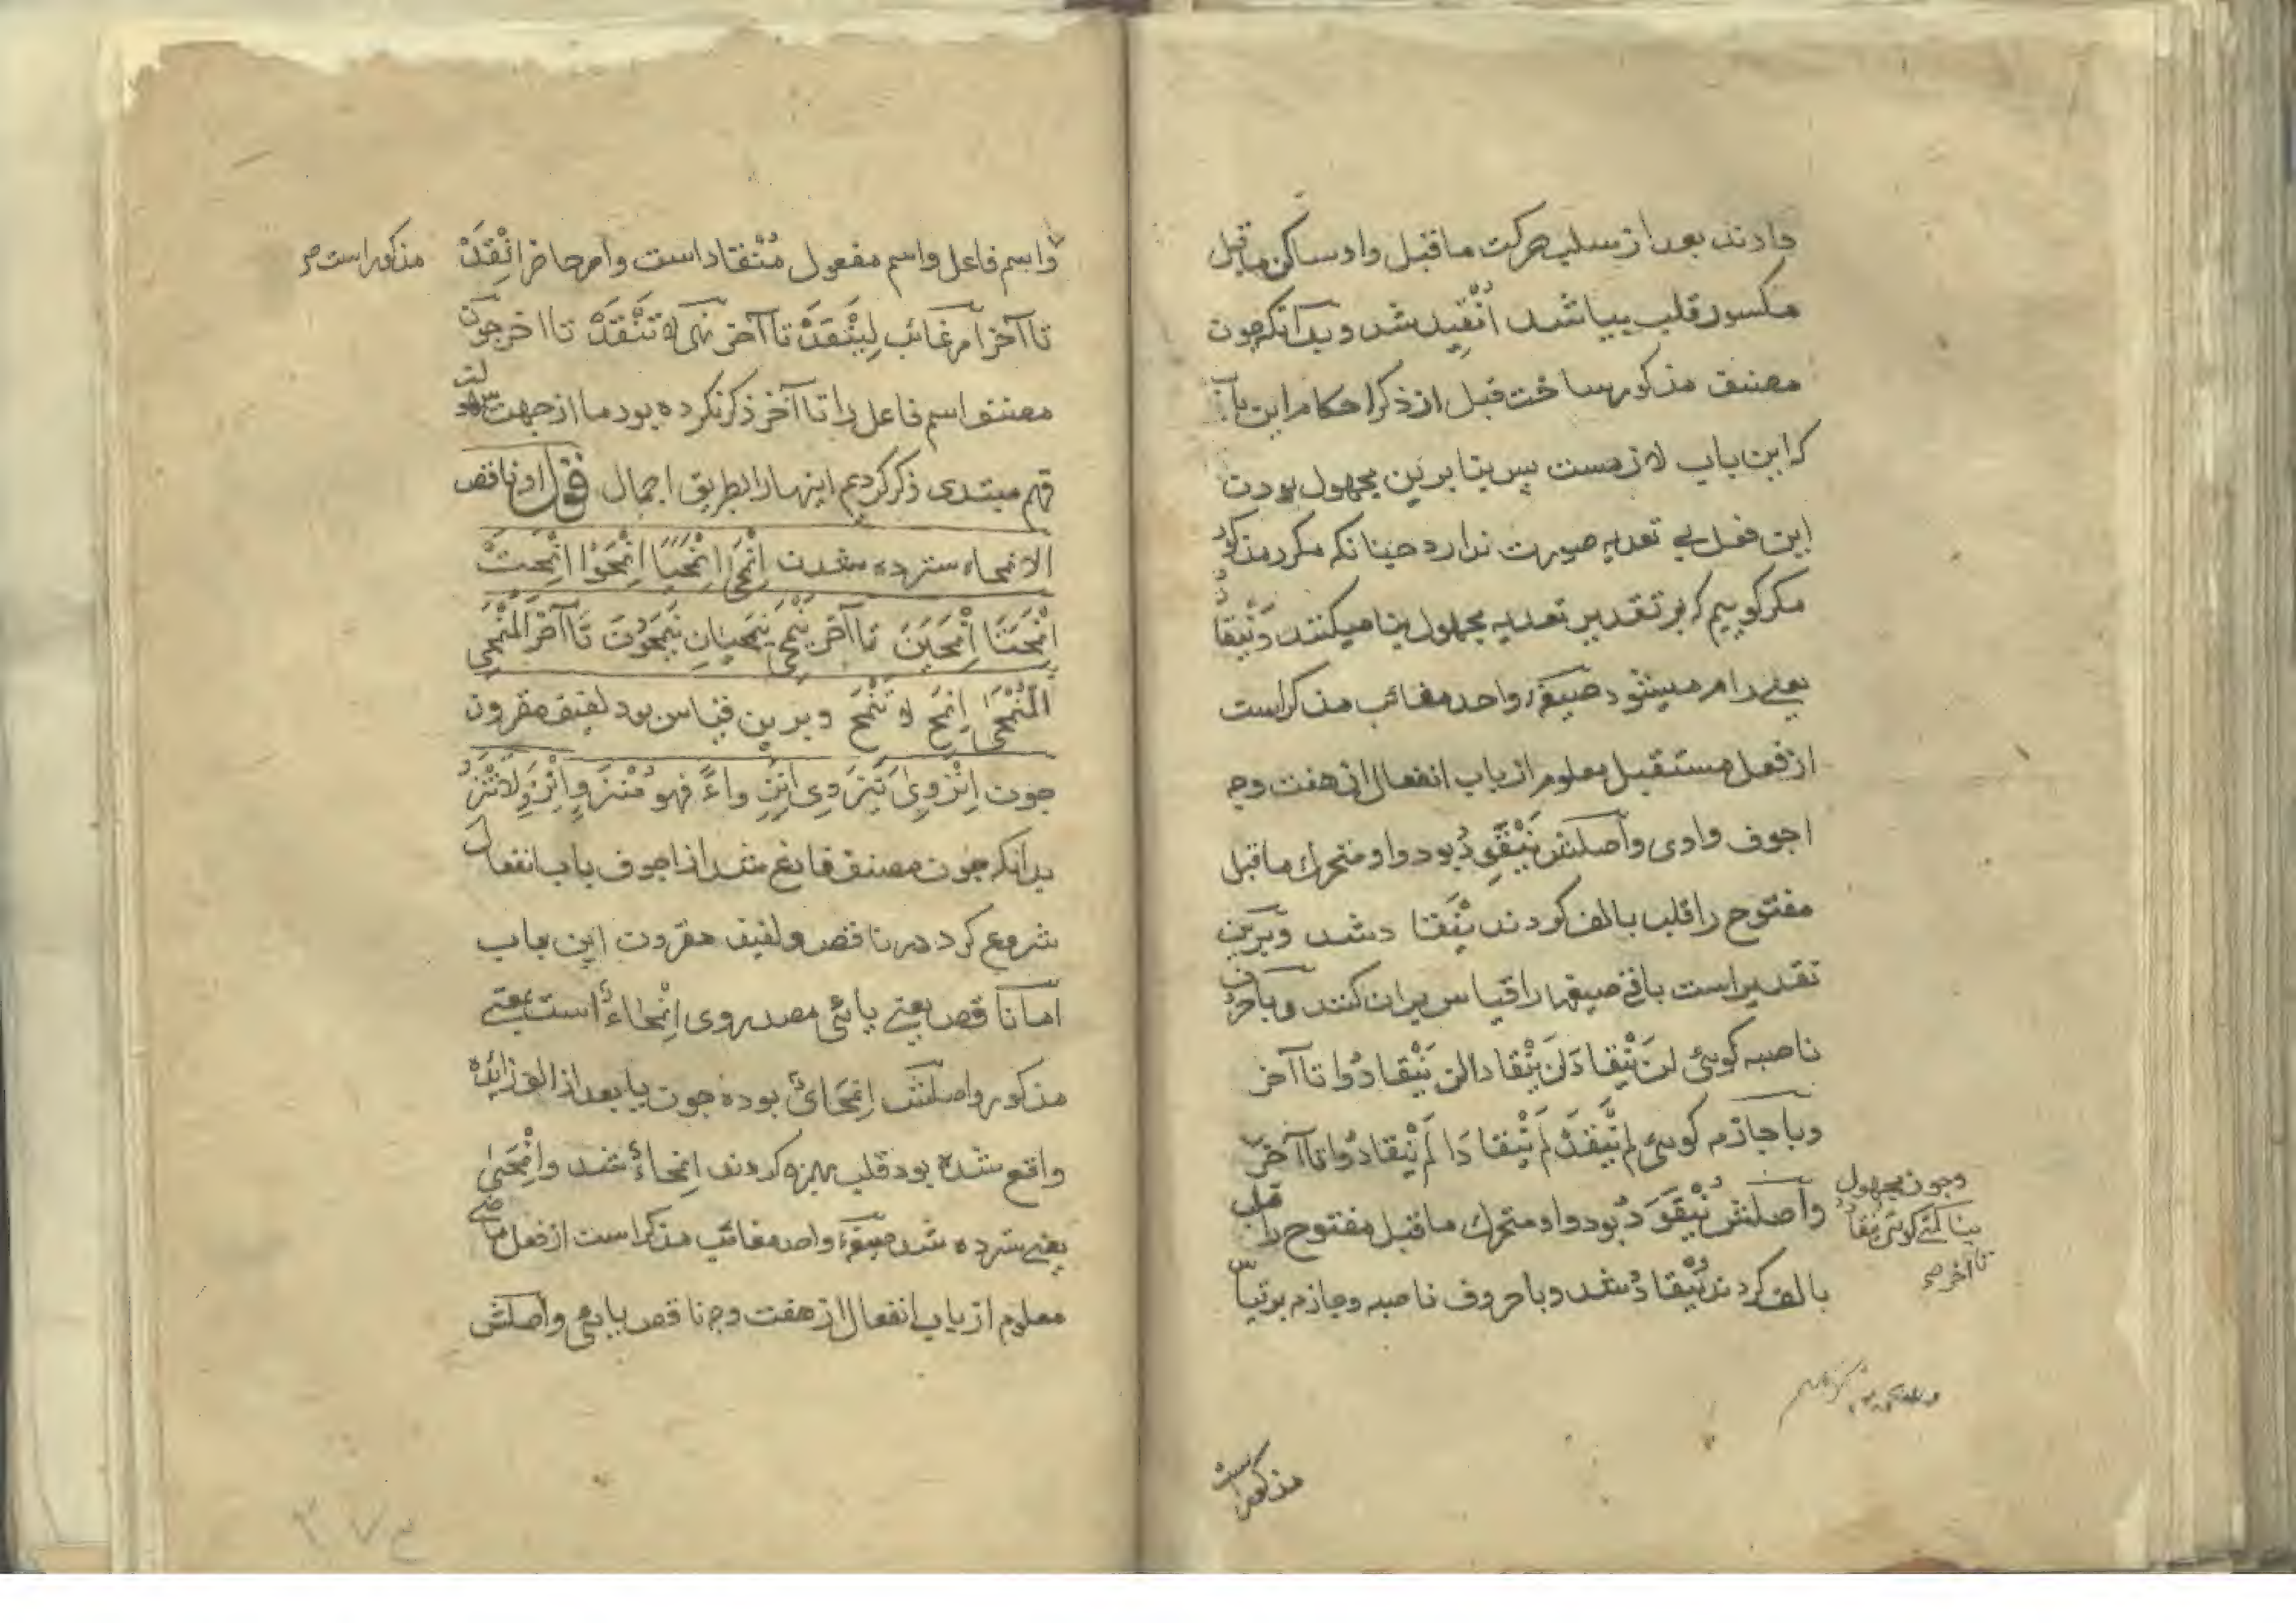 دادند بعد از سلب حرکت ماقبل واو ساکن ماقبل
مکسور قلب بیا شد اُنْقِیدَ شد و بدانکه چون
مصنف مذکور ساخت قبل از ذکر احکام این باب
که این باب لازمست پس بنا برین مجهول بودن
این فعل بی تعدیه صورت ندارد چنانکه مکرر مذکور
مکر کوییم که بر تقدیر تعدیه مجهول بنا میکنند وَیَنْقادُ
یعنی رام میشود صیغهٔ واحد مغائب مذکر است
از فعل مستقبل معلوم از باب انفعال از هفت وجه
اجوف واوی وأصلش یَنْقَوِدُ بود واو متحرك ماقبل
مفتوح را قلب بالف کردند یَنْقادُ شد وبرین
تقدیر است باقی صیغها را قیاس بران کنند وبا حروف
ناصبه کوئی لن یَنْقادَ لن یَنْقادا لن یَنْقادُوا تا آخر
وبا جازمه کوئی لم یَنْقَدْ لم یَنْقادَا لم یَنْقادُوا تا آخر
وچون مجهول
بنا کنی کوئی یُنْقادُ
تا آخر صح
وأصلش یُنْقَوَدُ بود واو متحرك ماقبل مفتوح را قلب
بالف کردند یُنْقادُ شد وبا حروف ناصبه وجازمه برقیاس
مذکور است
واسم فاعل واسم مفعول مُنْقاد است وامر حاضر اِنْقَدْ
مذکور است صح
تا آخر امر غائب لِیَنْقَدْ تا آخر نهی لا تَنْقَدْ تا اخر چون
مصنف اسم فاعل را تا آخر ذکر نکرده بود ما از جهت سهولت
فهم مبتدی ذکر کردیم اینها را بطریق اجمال قول او ناقص
الانمحاء سترده شدن اِنْمَحَیٰ اِنْمَحَیَا اِنْمَحَوْا اِنْمَحَتْ
اِنْمَحَتَا اِنْمَحَیْنَ تا آخر یَنْمَحِی یَنْمَحِیَانِ یَنْمَحُونَ تا آخر المُنْمَحِی
المُنْمَحَیٰ اِنْمَحِ لا تَنْمَحِ وبرین قیاس بود لفیف مقرون
چون اِنْزَوَیٰ یَنْزَوِی اِنْزِوَاءً فهو مُنْزَوٍ اِنْزَوِ لَاتَنْزَوِ
بدانکه چون مصنف فارغ شد از اجوف باب انفعال
شروع کرد در ناقص ولفیف مقرون این باب
اما ناقص یعنی یائی مصدر وی اِنْمِحَاءٌ است بمعنی
مذکور واصلش اِنْمِحَایٌ بوده چون یا بعد از الف زائده
واقع شده بود قلب بهمزه کردند اِنْمِحَاءٌ شد واِنْمَحَیٰ
یعنی سترده شد صیغهٔ واحد مغائب مذکر است از فعل ماضی
معلوم از باب انفعال از هفت وجه ناقص یائی وأصلش